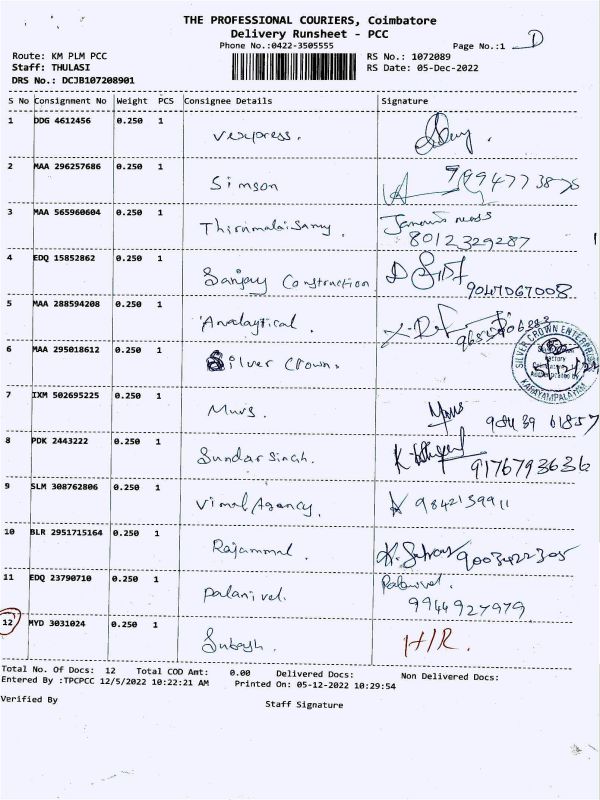 THE PROFESSIONAL COURIERS, Coimbatore
Delivery Runsheet - PCC
Phone No.:0422-3505555
Page No.:1 D
Route: KM PLM PCC
RS No.: 1072089
Staff: THULASI
RS Date: 05-Dec-2022
DRS No.: DCJB107208901
S No Consignment No Weight PCS Consignee Details Signature
1 DDG 4612456 0.250 1 Vexpress.
2 MAA 296257686 0.250 1 Simson
3 MAA 565960604 0.250 1 Thirumalaisamy.
8012329287
4 EDQ 15852862 0.250 1 Sanjay Construction
9047067008
5 MAA 288594208 0.250 1 Analaytical.
6 MAA 295018612 0.250 1 Silver Crown.
SILVER CROWN ENTERPRISE
KARAYAMPALAYAM
7 IXM 502695225 0.250 1 Muvs.
98439 61857
8 PDK 2443222 0.250 1 Sundar Singh.
9176793636
9 SLM 308762806 0.250 1 Vimal Agency.
9842159911
10 BLR 2951715164 0.250 1 Rajammal.
9003422305
11 EDQ 23790710 0.250 1 Palanivel. Palanivel.
9944927979
12 MYD 3031024 0.250 1 Subash. H/R.
Total No. Of Docs: 12 Total COD Amt: 0.00 Delivered Docs: Non Delivered Docs:
Entered By :TPCPCC 12/5/2022 10:22:21 AM Printed On: 05-12-2022 10:29:54
Verified By
Staff Signature